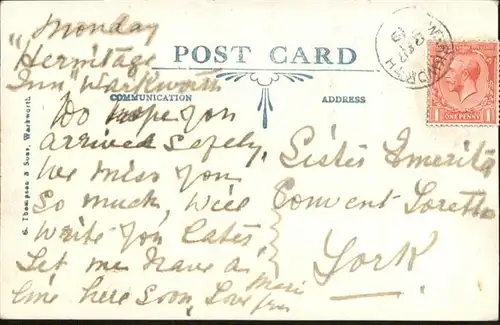 Monday
"Hermitage
Inn" Warkworth
POST CARD
COMMUNICATION
ADDRESS
Do hope you
arrived safely,
we miss you
so much, will
write you later,
Let me have a
line here soon, Love from
Mari
Sister Emerita
Convent Loretto
York
G. Thompson & Sons, Warkworth.
WARKWORTH
ONE PENNY